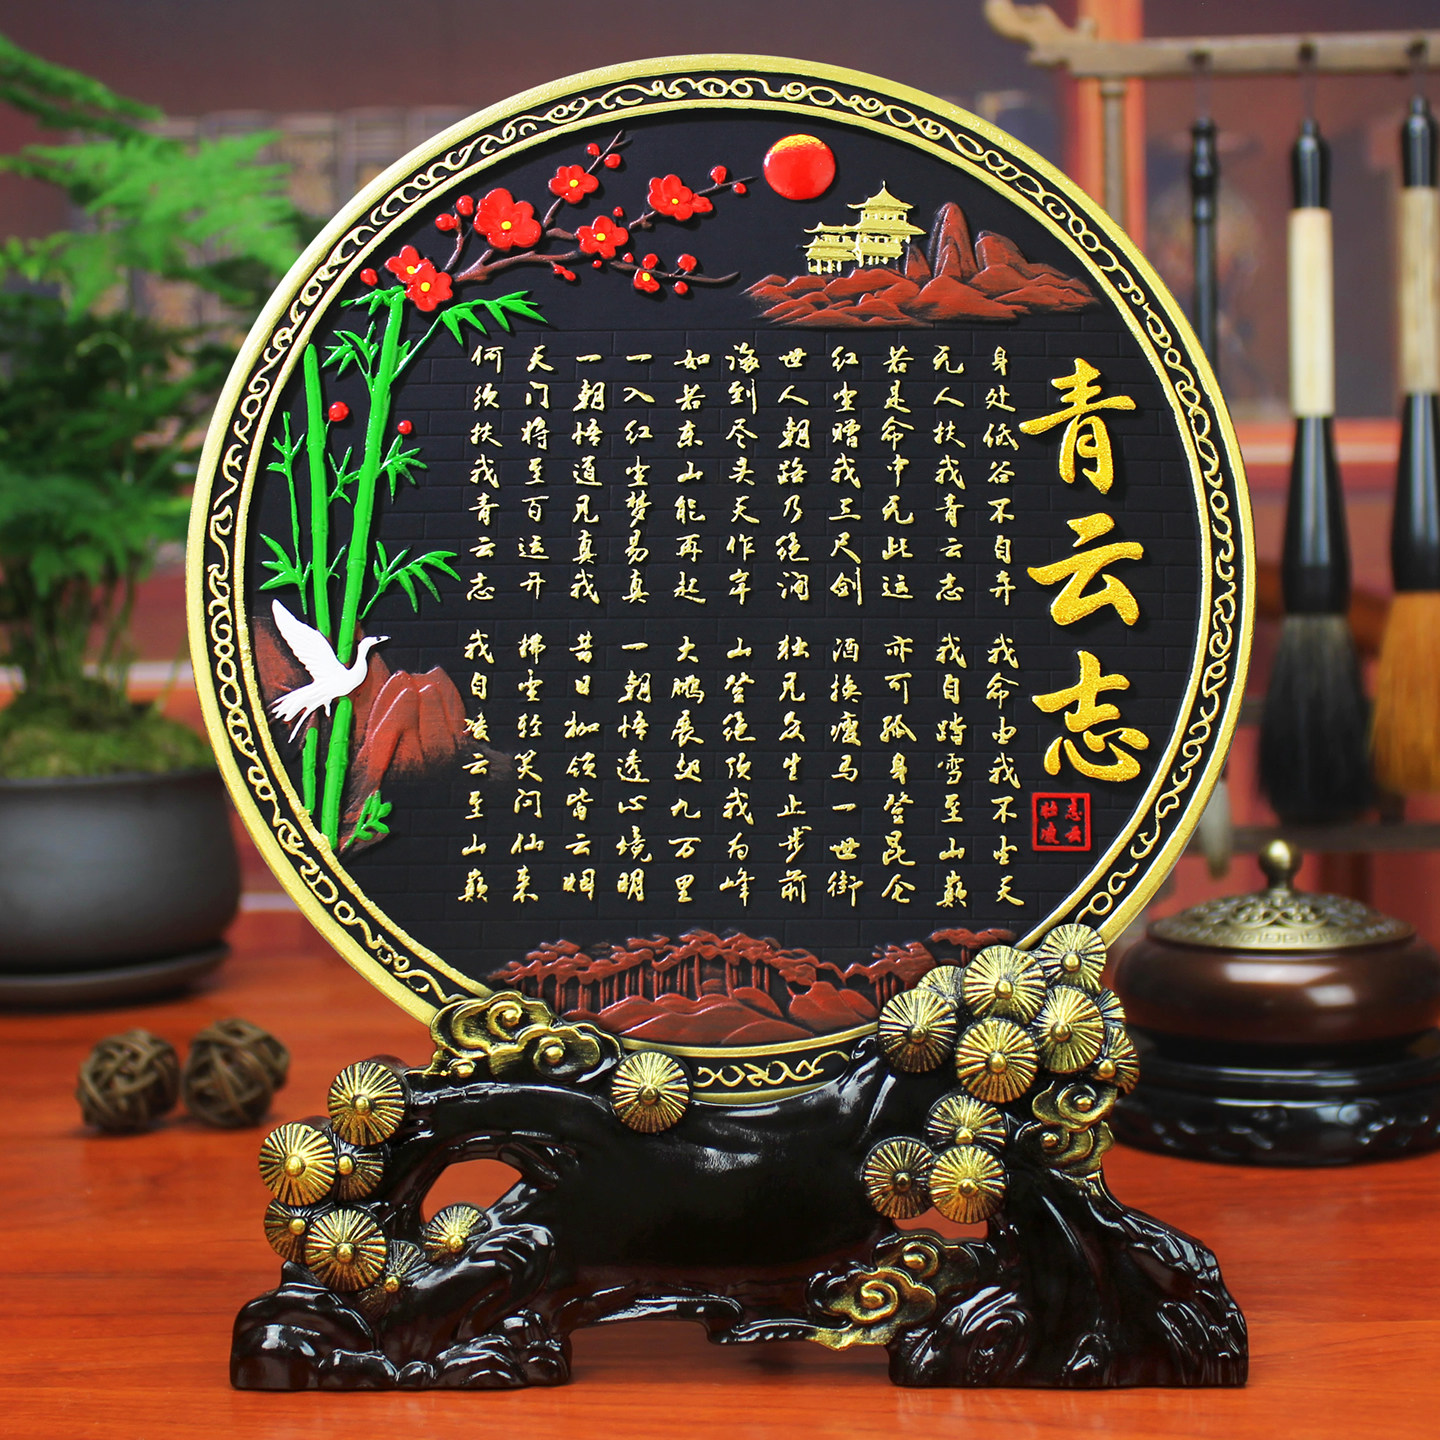 青云志
壮志
凌云
身处低谷不自弃 我命由我不由天
无人扶我青云志 我自踏雪至山巅
若是命中无此运 亦可孤身登昆仑
红尘赠我三尺剑 酒换瘦马一世街
世人朝路乃绝涧 独凡众生止步前
海到尽头天作岸 山登绝顶我为峰
如若东山能再起 大鹏展翅九万里
一入红尘梦易真 一朝悟透心境明
一朝悟道见真我 昔日枷锁皆云烟
天门将至百运开 拂尘轻笑问仙来
何须扶我青云志 我自凌云至山巅